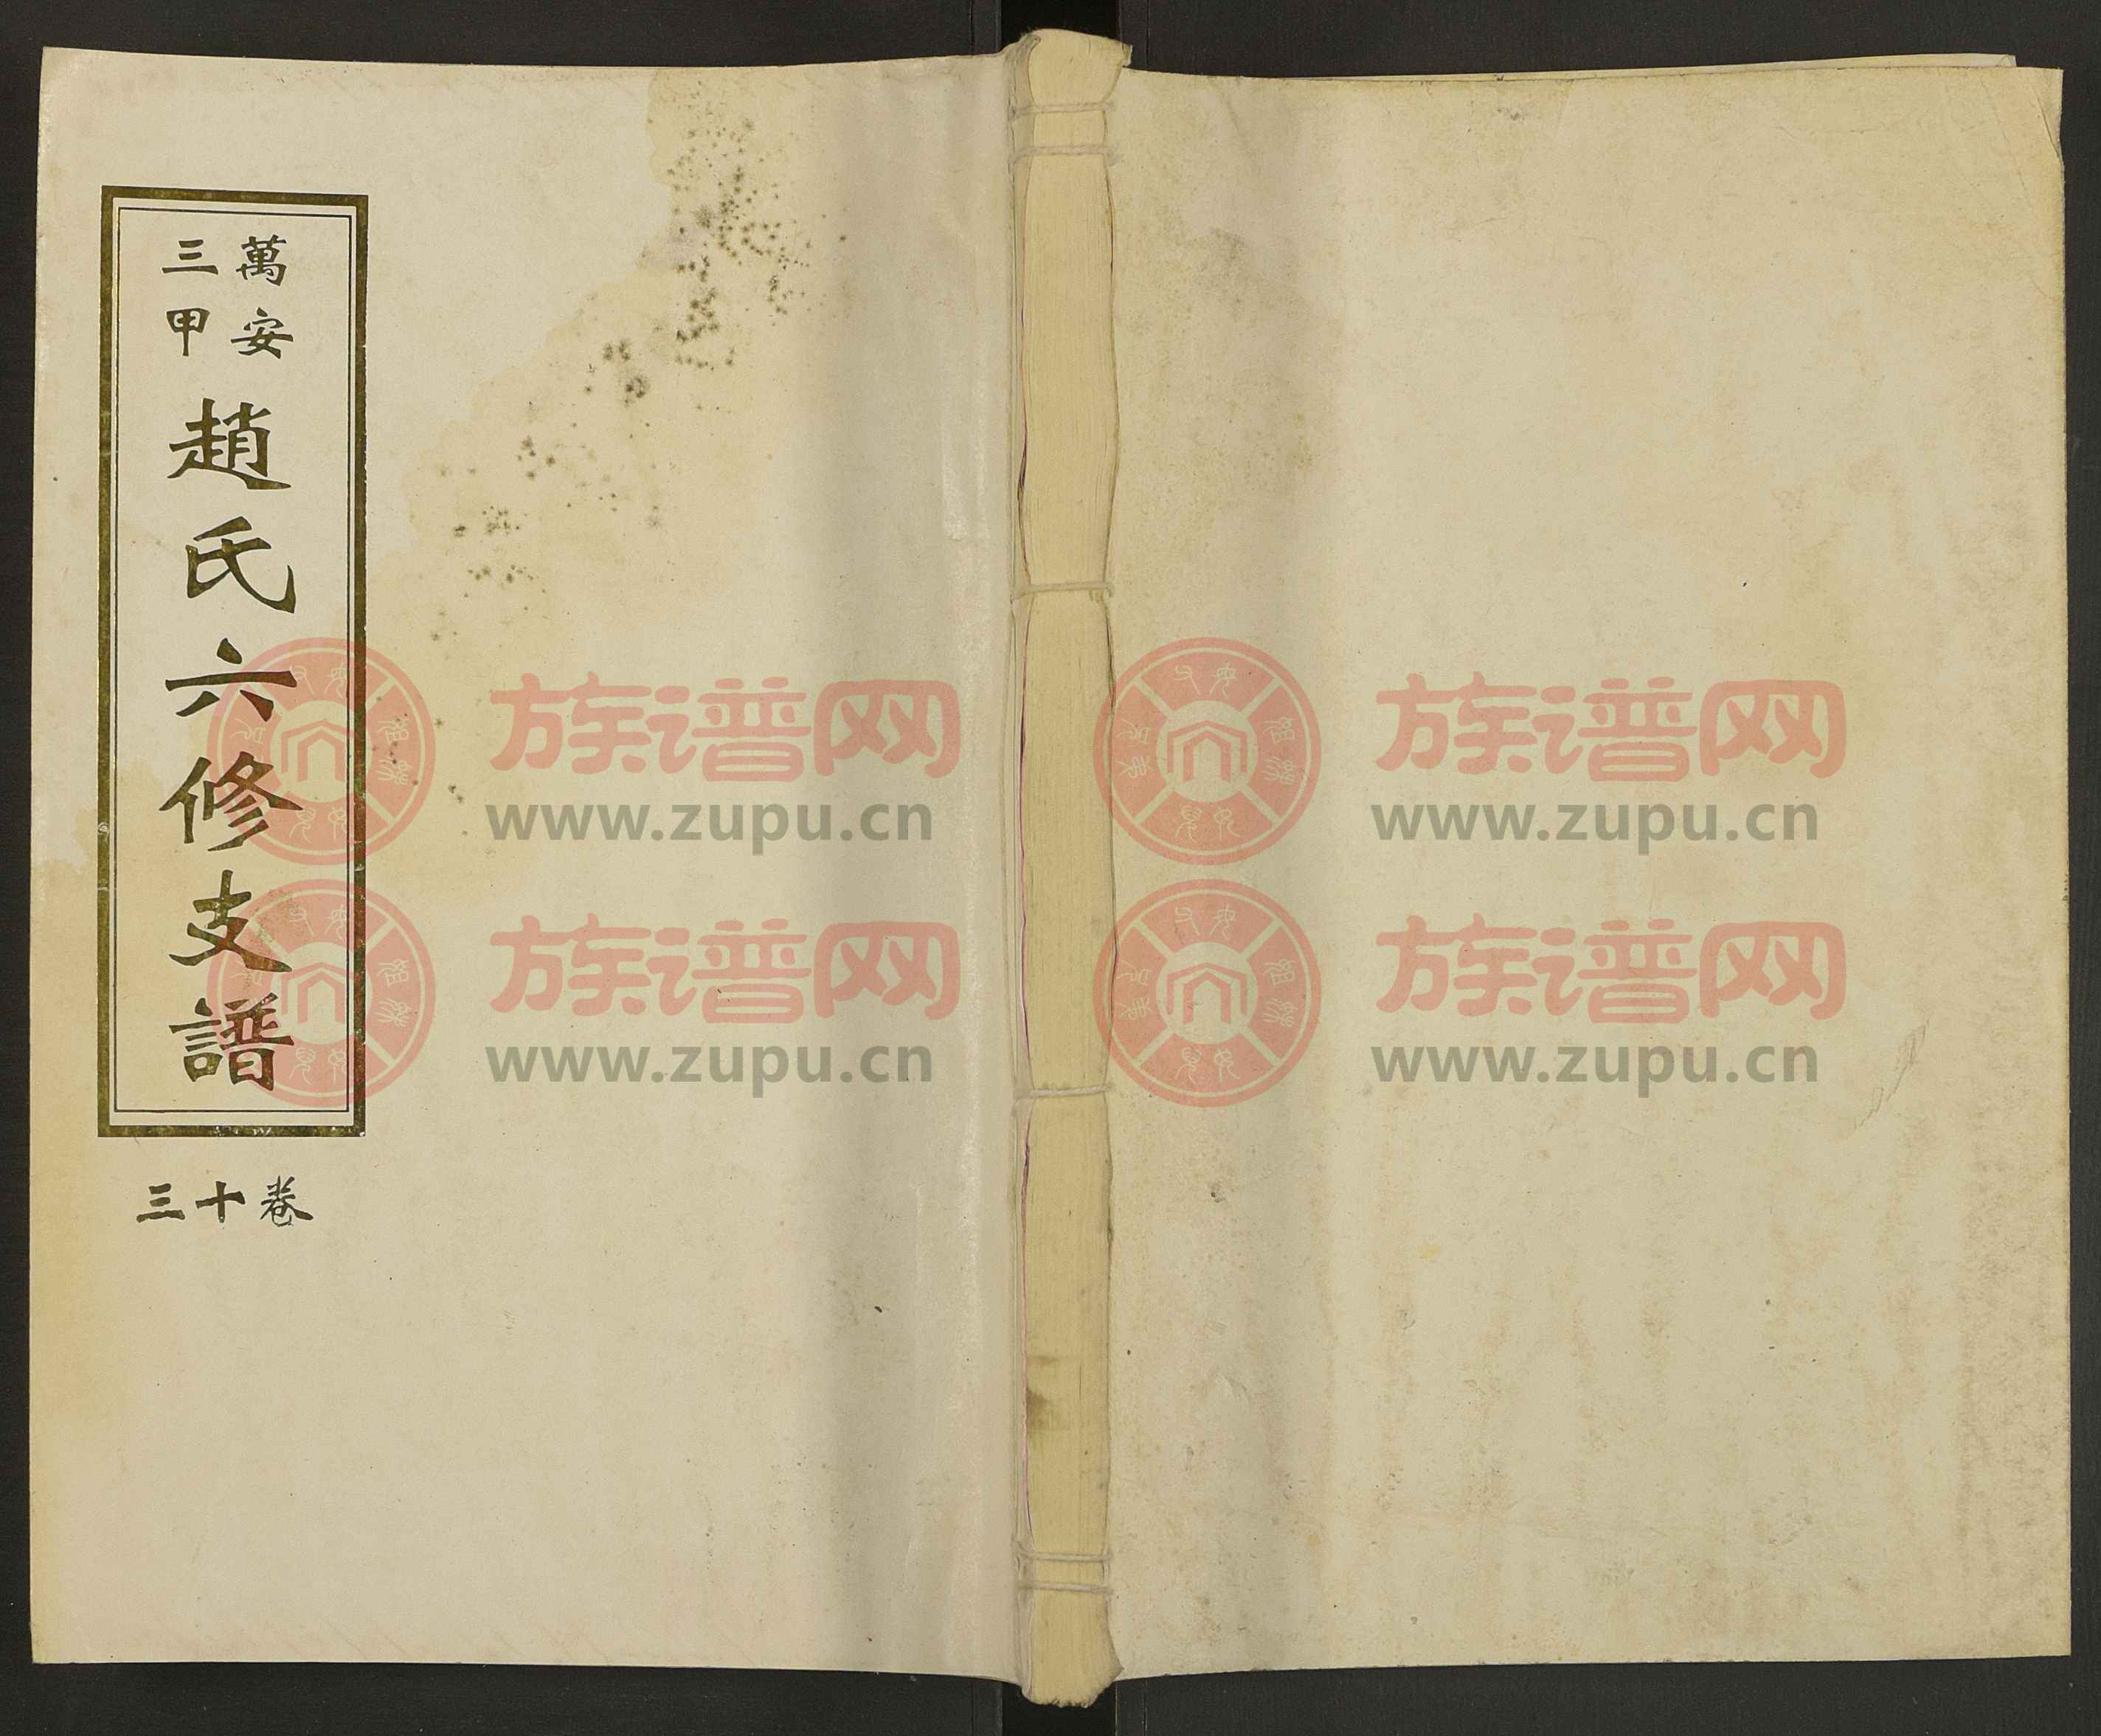 萬安
三甲
趙氏六修支譜
卷十三
族谱网
www.zupu.cn
族谱网
www.zupu.cn
族谱网
www.zupu.cn
族谱网
www.zupu.cn